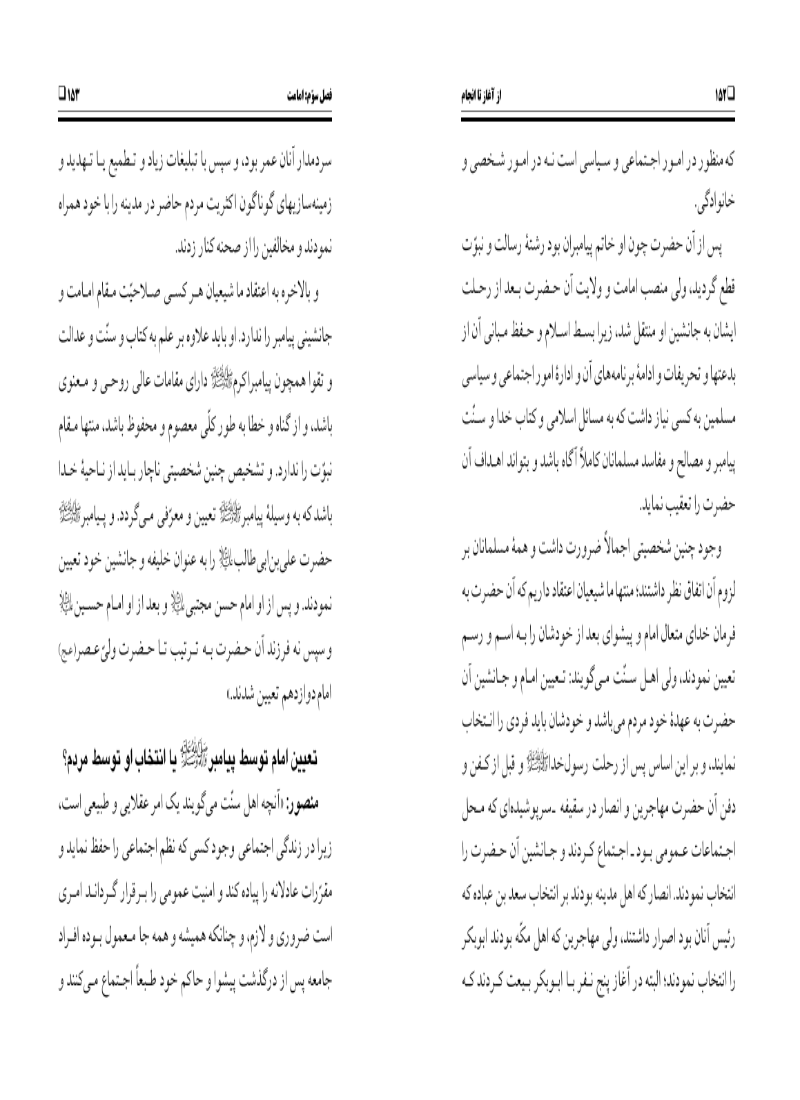 ❏ ۱۵۲
از آغاز تا انجام
که منظور در امور اجتماعی و سیاسی است نه در امور شخصی و
خانوادگی.
پس از آن حضرت چون او خاتم پیامبران بود رشتهٔ رسالت و نبوّت
قطع گردید، ولی منصب امامت و ولایت آن حضرت بعد از رحلت
ایشان به جانشین او منتقل شد، زیرا بسط اسلام و حفظ مبانی آن از
بدعتها و تحریفات و ادامهٔ برنامه‌های آن و ادارهٔ امور اجتماعی و سیاسی
مسلمین به کسی نیاز داشت که به مسائل اسلامی و کتاب خدا و سنّت
پیامبر و مصالح و مفاسد مسلمانان کاملاً آگاه باشد و بتواند اهداف آن
حضرت را تعقیب نماید.
وجود چنین شخصیتی اجمالاً ضرورت داشت و همهٔ مسلمانان بر
لزوم آن اتفاق نظر داشتند؛ منتها ما شیعیان اعتقاد داریم که آن حضرت به
فرمان خدای متعال امام و پیشوای بعد از خودشان را به اسم و رسم
تعیین نمودند، ولی اهل سنّت می‌گویند: تعیین امام و جانشین آن
حضرت به عهدهٔ خود مردم می‌باشد و خودشان باید فردی را انتخاب
نمایند، و بر این اساس پس از رحلت رسول‌خداﷺ و قبل از کفن و
دفن آن حضرت مهاجرین و انصار در سقیفه ـ سرپوشیده‌ای که محل
اجتماعات عمومی بود ـ اجتماع کردند و جانشین آن حضرت را
انتخاب نمودند. انصار که اهل مدینه بودند بر انتخاب سعد بن عباده که
رئیس آنان بود اصرار داشتند، ولی مهاجرین که اهل مکّه بودند ابوبکر
را انتخاب نمودند؛ البته در آغاز پنج نفر با ابوبکر بیعت کردند که
فصل سوّم: امامت
۱۵۳ ❏
سردمدار آنان عمر بود، و سپس با تبلیغات زیاد و تطمیع یا تهدید و
زمینه‌سازیهای گوناگون اکثریت مردم حاضر در مدینه را با خود همراه
نمودند و مخالفین را از صحنه کنار زدند.
و بالاخره به اعتقاد ما شیعیان هر کسی صلاحیّت مقام امامت و
جانشینی پیامبر را ندارد. او باید علاوه بر علم به کتاب و سنّت و عدالت
و تقوا همچون پیامبراکرمﷺ دارای مقامات عالی روحی و معنوی
باشد، و از گناه و خطا به طور کلّی معصوم و محفوظ باشد، منتها مقام
نبوّت را ندارد. و تشخیص چنین شخصیتی ناچار باید از ناحیهٔ خدا
باشد که به وسیلهٔ پیامبرﷺ تعیین و معرّفی می‌گردد. و پیامبرﷺ
حضرت علی‌بن‌ابی‌طالب علیه‌السلام را به عنوان خلیفه و جانشین خود تعیین
نمودند. و پس از او امام حسن مجتبی علیه‌السلام و بعد از او امام حسین علیه‌السلام
و سپس نه فرزند آن حضرت به ترتیب تا حضرت ولیّ‌عصر(عج)
امام دوازدهم تعیین شدند.»
تعیین امام توسط پیامبرﷺ یا انتخاب او توسط مردم؟
منصور: «آنچه اهل سنّت می‌گویند یک امر عقلایی و طبیعی است،
زیرا در زندگی اجتماعی وجود کسی که نظم اجتماعی را حفظ نماید و
مقرّرات عادلانه را پیاده کند و امنیت عمومی را برقرار گرداند امری
است ضروری و لازم، و چنانکه همیشه و همه جا معمول بوده افراد
جامعه پس از درگذشت پیشوا و حاکم خود طبعاً اجتماع می‌کنند و